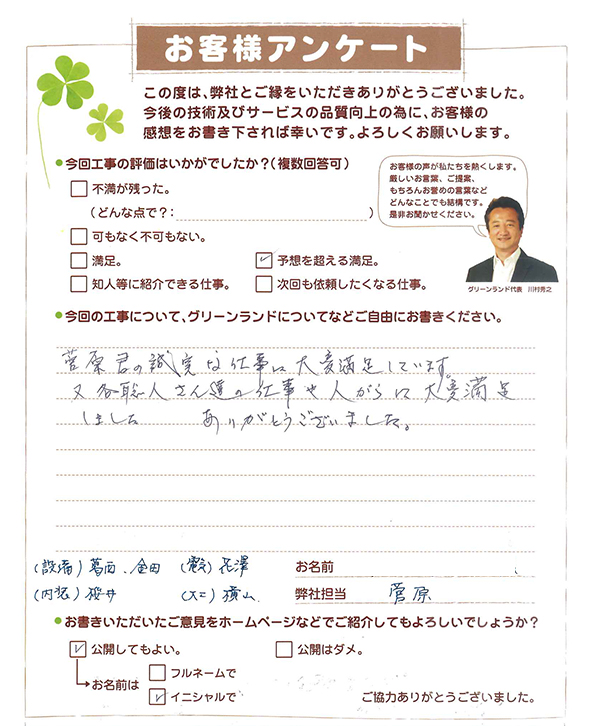 お客様アンケート
この度は、弊社とご縁をいただきありがとうございました。
今後の技術及びサービスの品質向上の為に、お客様の
感想をお書き下されば幸いです。よろしくお願いします。
今回工事の評価はいかがでしたか?(複数回答可)
不満が残った。
(どんな点で?: )
可もなく不可もない。
満足。
予想を超える満足。
知人等に紹介できる仕事。
次回も依頼したくなる仕事。
お客様の声が私たちを熱くします。
厳しいお言葉、ご提案、
もちろんお誉めの言葉など
どんなことでも結構です。
是非お聞かせください。
グリーンランド代表 川村秀之
今回の工事について、グリーンランドについてなどご自由にお書きください。
菅原君の誠実な仕事に大変満足しています。
又各職人さん達の仕事や人がらに大変満足
しました ありがとうございました。
(設備)葛西、金田 (電気)花澤
(内装)桜井 (大工)横山
お名前
弊社担当 菅原
お書きいただいたご意見をホームページなどでご紹介してもよろしいでしょうか?
公開してもよい。
公開はダメ。
お名前は
フルネームで
イニシャルで
ご協力ありがとうございました。